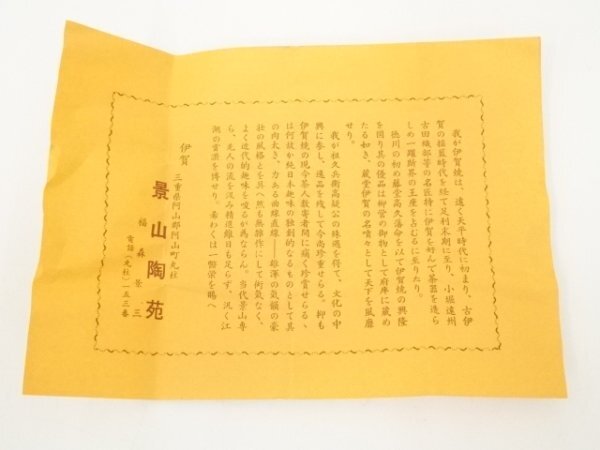 我が伊賀焼は、遠く天平時代に初まり、古伊
賀の揺籃時代を経て足利末期に至り、小堀遠州
古田織部等の名匠特に伊賀を好んで茶器を造ら
しめ一躍斯界の王座を占むるに至りたり。
徳川の初め藤堂高久藩命を以て伊賀焼の興隆
を図り其の優品は柳営の御物として府庫に蔵め
たる如き、藤堂伊賀の名嘖々として天下を風靡
せり。
我が祖久兵衛高嶷公の殊遇を得て、文化の中
興に参し、逸品を残して今尚珍重せらる。抑も
伊賀焼の現今茶人数寄者間に痛く珍賞せらるゝ
は何故か純日本趣味の独創的なるものとして其
の肉太き、力ある曲線直線――雄渾の気韻の豪
壮の風格とを具へ然も無雑作にして衒気なく、
よく近代的趣味を唆るが為ならん。当代景山専
ら、先人の流を汲み精進維日も足らず、汎く江
湖の賞讃を博せり。希わくは一顧栄を賜へ
伊賀
三重県阿山郡阿山町丸柱
景山陶苑
福森景三
電話（丸柱）一五三番